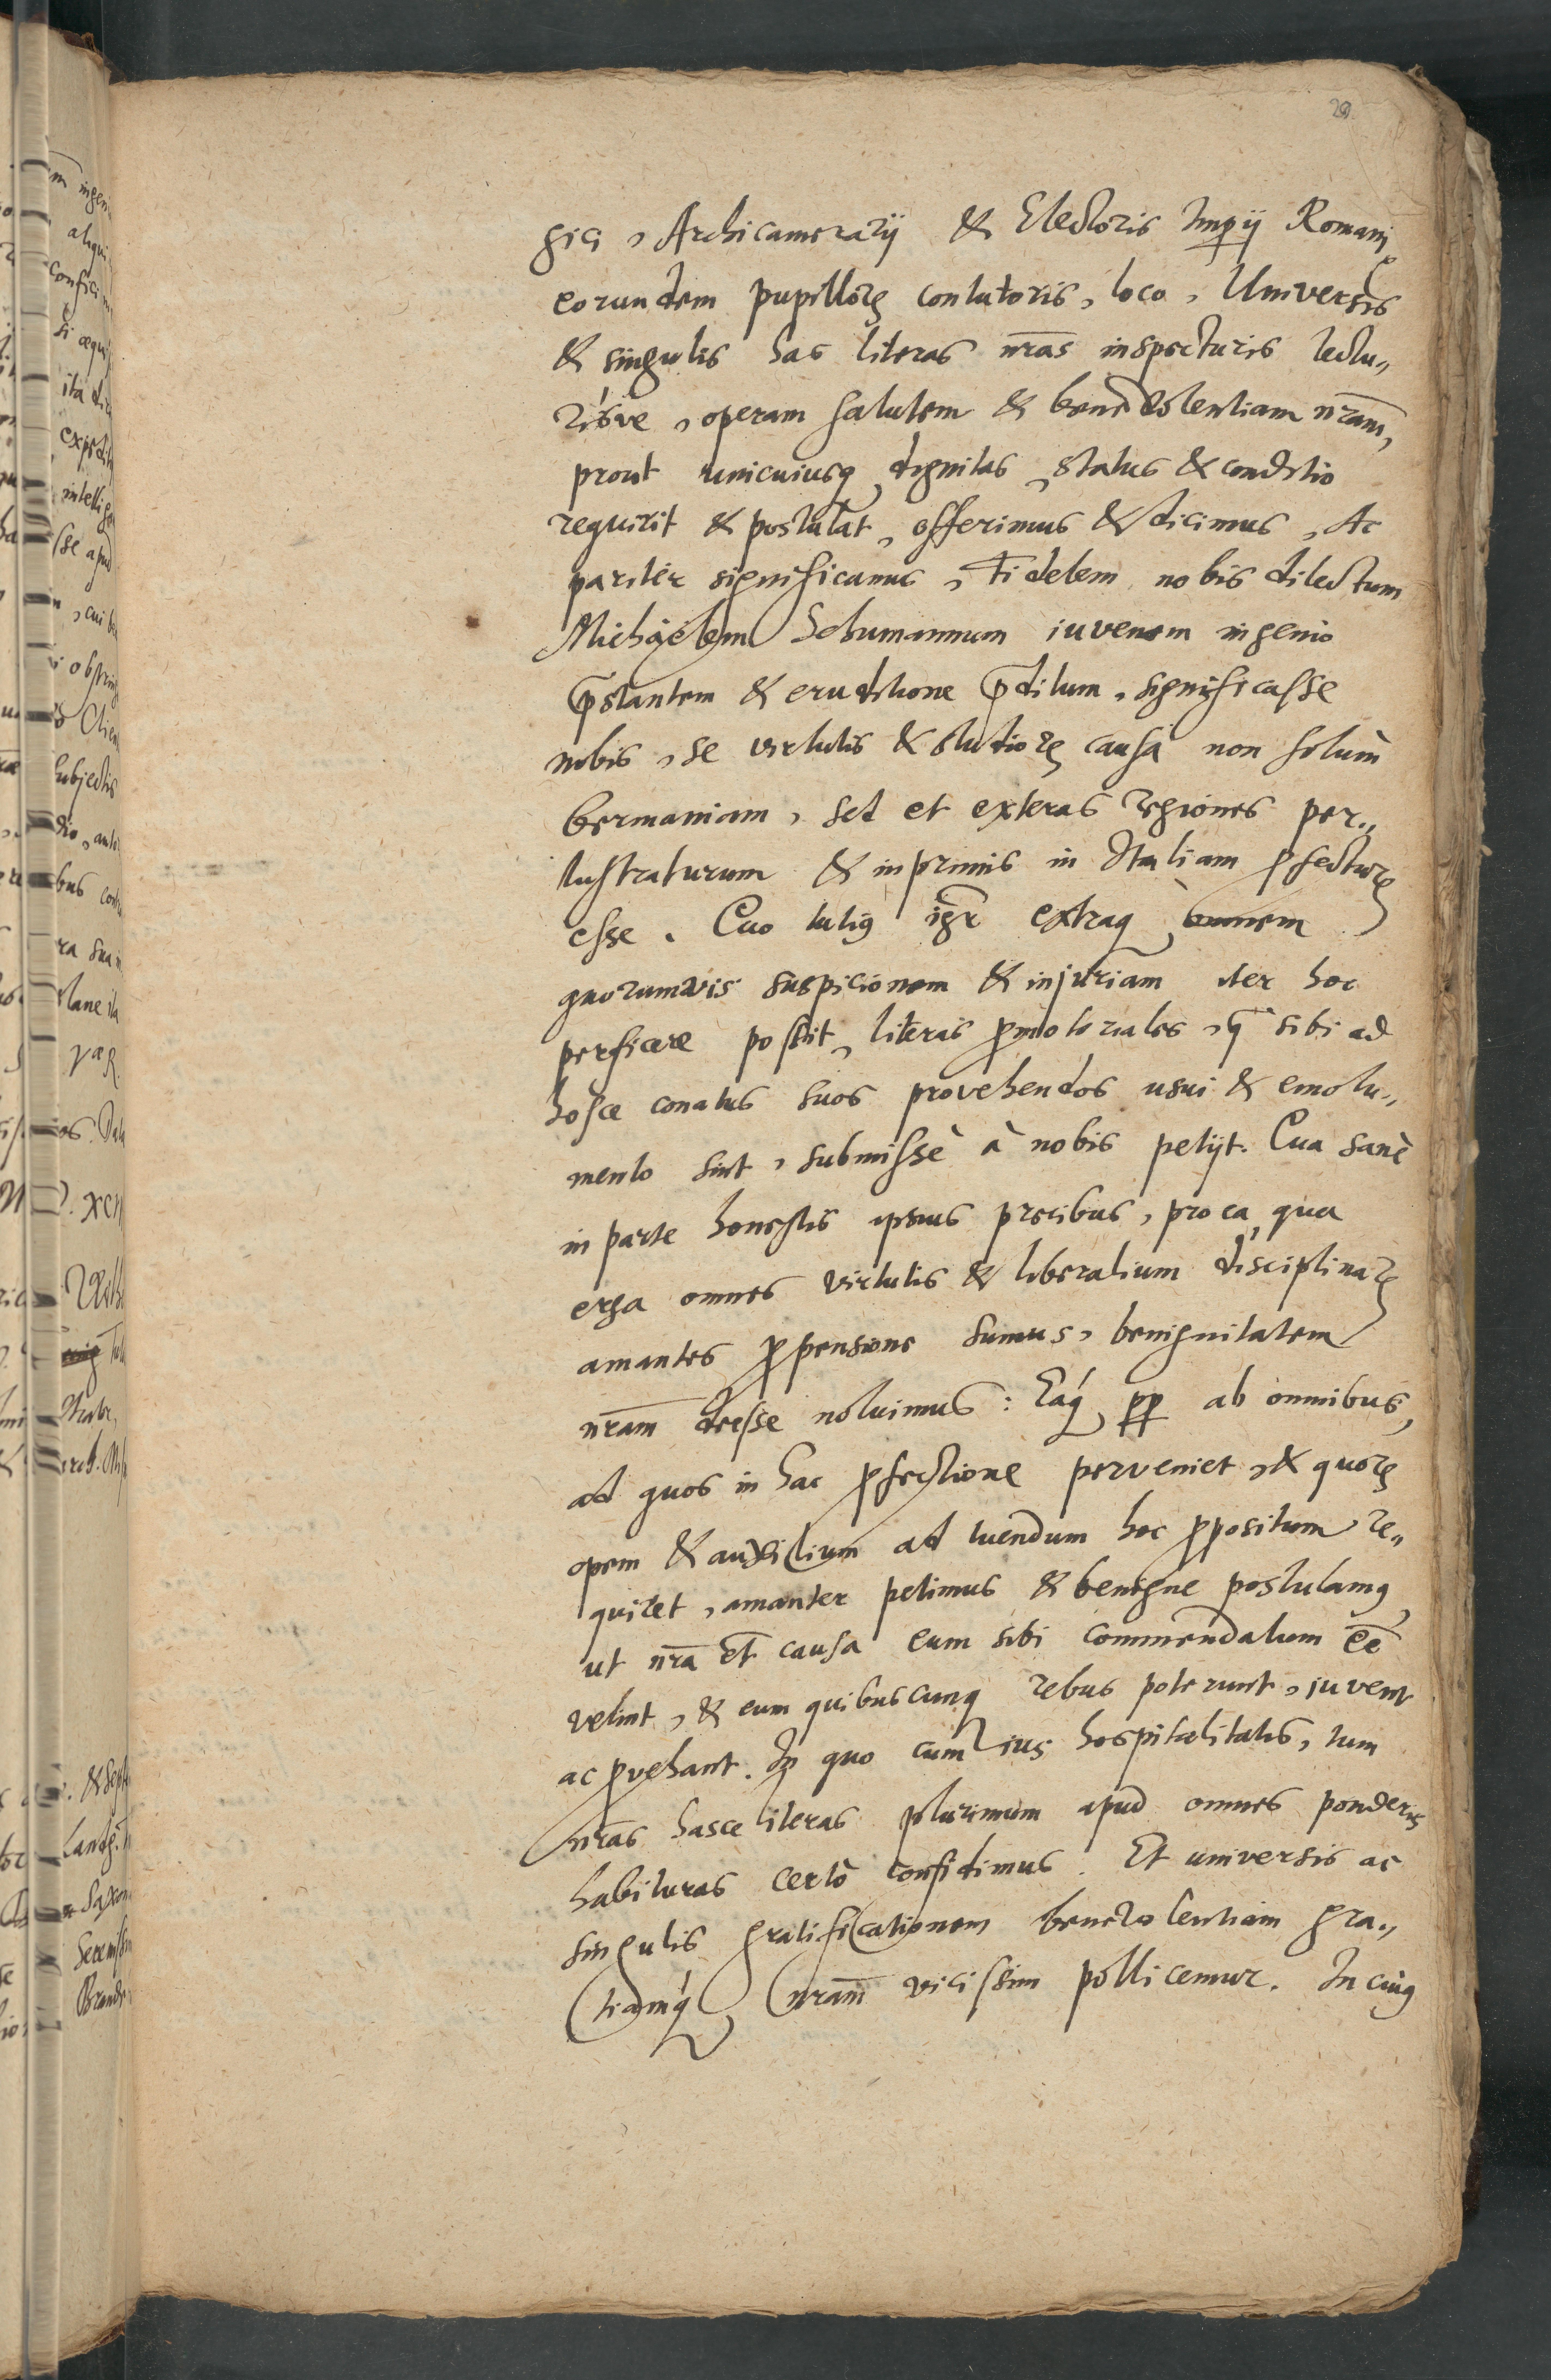 29
gici, Archicamerarij & Electoris Imp̱ij Romanj
eorundem pupillorꝝ contutoris, loco, Universis
& singulis has literas nr̄as inspecturis lectu„
risve, operam salutem & benevolentiam nr̄am,
prout unicuiusq́ꝫ dignitas, status & conditio
requirit & postulat, offerimus & dicimus, Ac
pariter significamus, Fidelem nobis dilectum
Michaëlem Schumannum iuvenem ingenio
p̄stantem & eruditione p̄ditum, significasse
nobis, se virtutis & studiorꝝ causa non solum̀
Germaniam, sed et exteras regiones per„
lustraturum & inprimis in Italiam ꝓfecturꝝ
esse. Quo tutiꝰ igr̄ extraq́ꝫ omnem
quorumvis suspicionem & injuriam iter hoc
perficere possit, literas ꝓmotoriales, q̄ sibi ad
hosce conatus suos provehendos usui & emolu„
mento sint, submissè à nobis petijt. Qua sanè
in parte honestis ipsius precibus, pro ea, qua
erga omnes virtutis & liberalium disciplinarꝝ
amantes ꝓpensione sumus, benignitatem
nr̄am deesse noluimus: Eaq́ꝫ ꝓp̱ ab omnibus,
ad quos in hac ꝓfectione perveniet, & quorꝝ
opem & auxilium ad tuendum hoc ꝓpositum re„
quiret, amanter petimus & benigne postulamꝰ,
ut nr̄a et̄ causa eum sibi commendatum eē
velint, & eum quibuscunqꝫ rebus poterunt, iuvent
ac ꝓvehant. In quo cum ius hospitalitatis, tum
nr̄as hasce literas plurimum apud omnes ponderis
habituras certò confidimus. Et universis ac
singulis gratificationem benevolentiam gra„
tiamq́ꝫ nr̄am vicissim pollicemur. In cuiꝰ